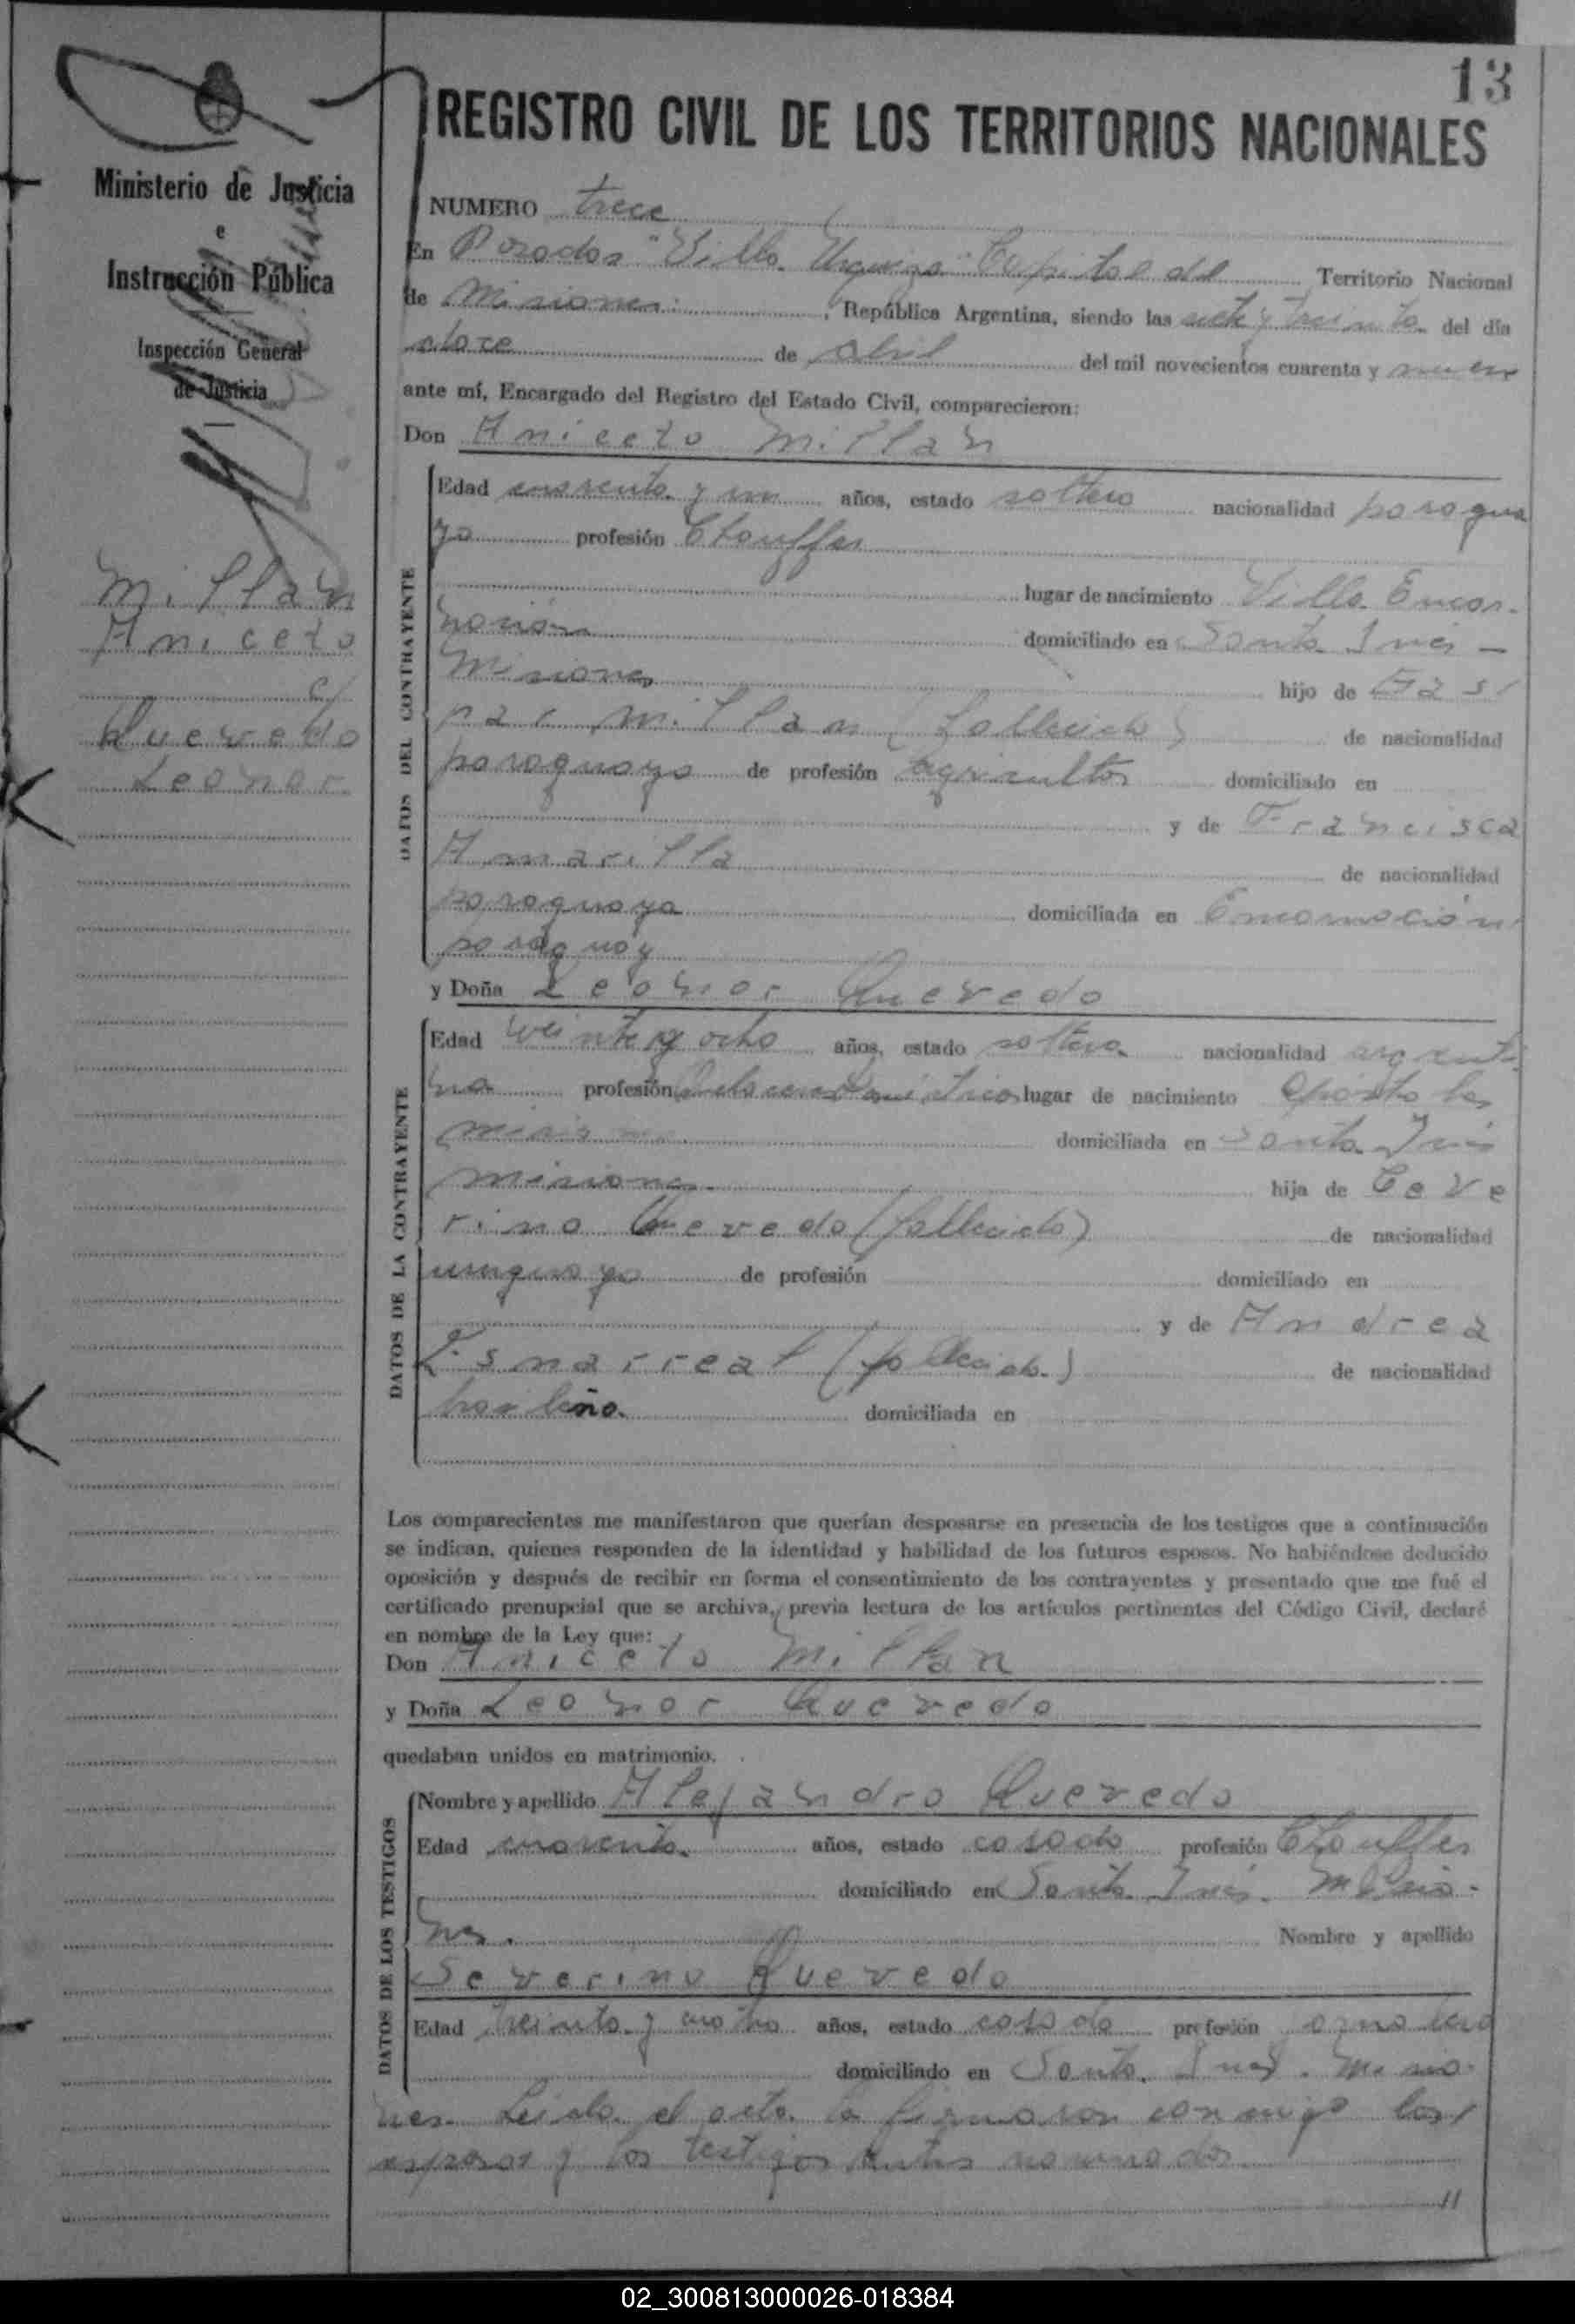 13
REGISTRO CIVIL DE LOS TERRITORIOS NACIONALES
Ministerio de Justicia
e
Instrucción Pública
Inspección General
de Justicia
Millan
Aniceto
c/
Quevedo
Leonor
NUMERO trece
En Posadas "Villa Urquiza" Capital del Territorio Nacional
de Misiones, República Argentina, siendo las siete y treinta del día
doce de abril del mil novecientos cuarenta y nueve
ante mí, Encargado del Registro del Estado Civil, comparecieron:
Don Aniceto Millan
DATOS DEL CONTRAYENTE
Edad cuarenta y un años, estado soltero nacionalidad paragua
yo profesión Chouffer
lugar de nacimiento Villa Encar-
nación domiciliado en Santa Inés -
Misiones hijo de Gas
par Millan (fallecido) de nacionalidad
paraguayo de profesión agricultor domiciliado en
y de Francisca
Amarilla de nacionalidad
paraguaya domiciliada en Encarnación
paraguay
y Doña Leonor Quevedo
DATOS DE LA CONTRAYENTE
Edad veinte y ocho años, estado soltera nacionalidad argenti
na profesión lugar de nacimiento Apóstoles
Misiones domiciliada en Santa Inés
Misiones hija de Ceve
rino Quevedo (fallecido) de nacionalidad
uruguayo de profesión domiciliado en
y de Andrea
(fallecida) de nacionalidad
brasileña domiciliada en
Los comparecientes me manifestaron que querían desposarse en presencia de los testigos que a continuación
se indican, quienes responden de la identidad y habilidad de los futuros esposos. No habiéndose deducido
oposición y después de recibir en forma el consentimiento de los contrayentes y presentado que me fué el
certificado prenupcial que se archiva, previa lectura de los artículos pertinentes del Código Civil, declaré
en nombre de la Ley que:
Don Aniceto Millan
y Doña Leonor Quevedo
quedaban unidos en matrimonio.
DATOS DE LOS TESTIGOS
Nombre y apellido Alejandro Quevedo
Edad cuarenta años, estado casado profesión Chouffer
domiciliado en Santa Inés. Misio-
nes. Nombre y apellido
Severino Quevedo
Edad treinta y cuatro años, estado casado profesión
domiciliado en Santa Inés. Misio-
nes. Leída el acta la firmaron conmigo los
esposos y los testigos antes nominados
//
02_300813000026-018384